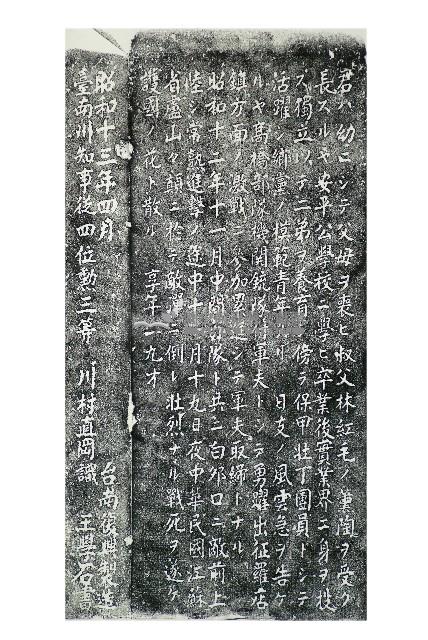 君ハ幼ニシテ父母ヲ喪ヒ叔父林紅毛ノ薫陶ヲ受ク
長スルヤ安平公學校ニ學ヒ卒業後實業界ニ身ヲ投
ス獨立シテ二弟ヲ養育シ傍ラ保甲壮丁團員トシテ
活躍シ鄉黨ノ模範青年 日支ノ風雲急ヲ告ケ
ルヤ馬橋部隊機関銃隊 軍夫トシテ勇躍出征羅店
鎮方面ノ激戦ニ參加累進シテ軍夫取締トナル
昭和十二年十一月中 隊ト共ニ白茆口ニ敵前上
陸シ常熟進撃ノ途中十 月十九日夜中華民國江蘇
省盧山々頭ニ於テ敵彈ニ倒レ壮烈ナル戰死ヲ遂ケ
護國ノ花ト散ル 享年一九才
昭和十三年四月
臺南州知事從四位勲三等 川村直岡識 台南復興製造 王學石書